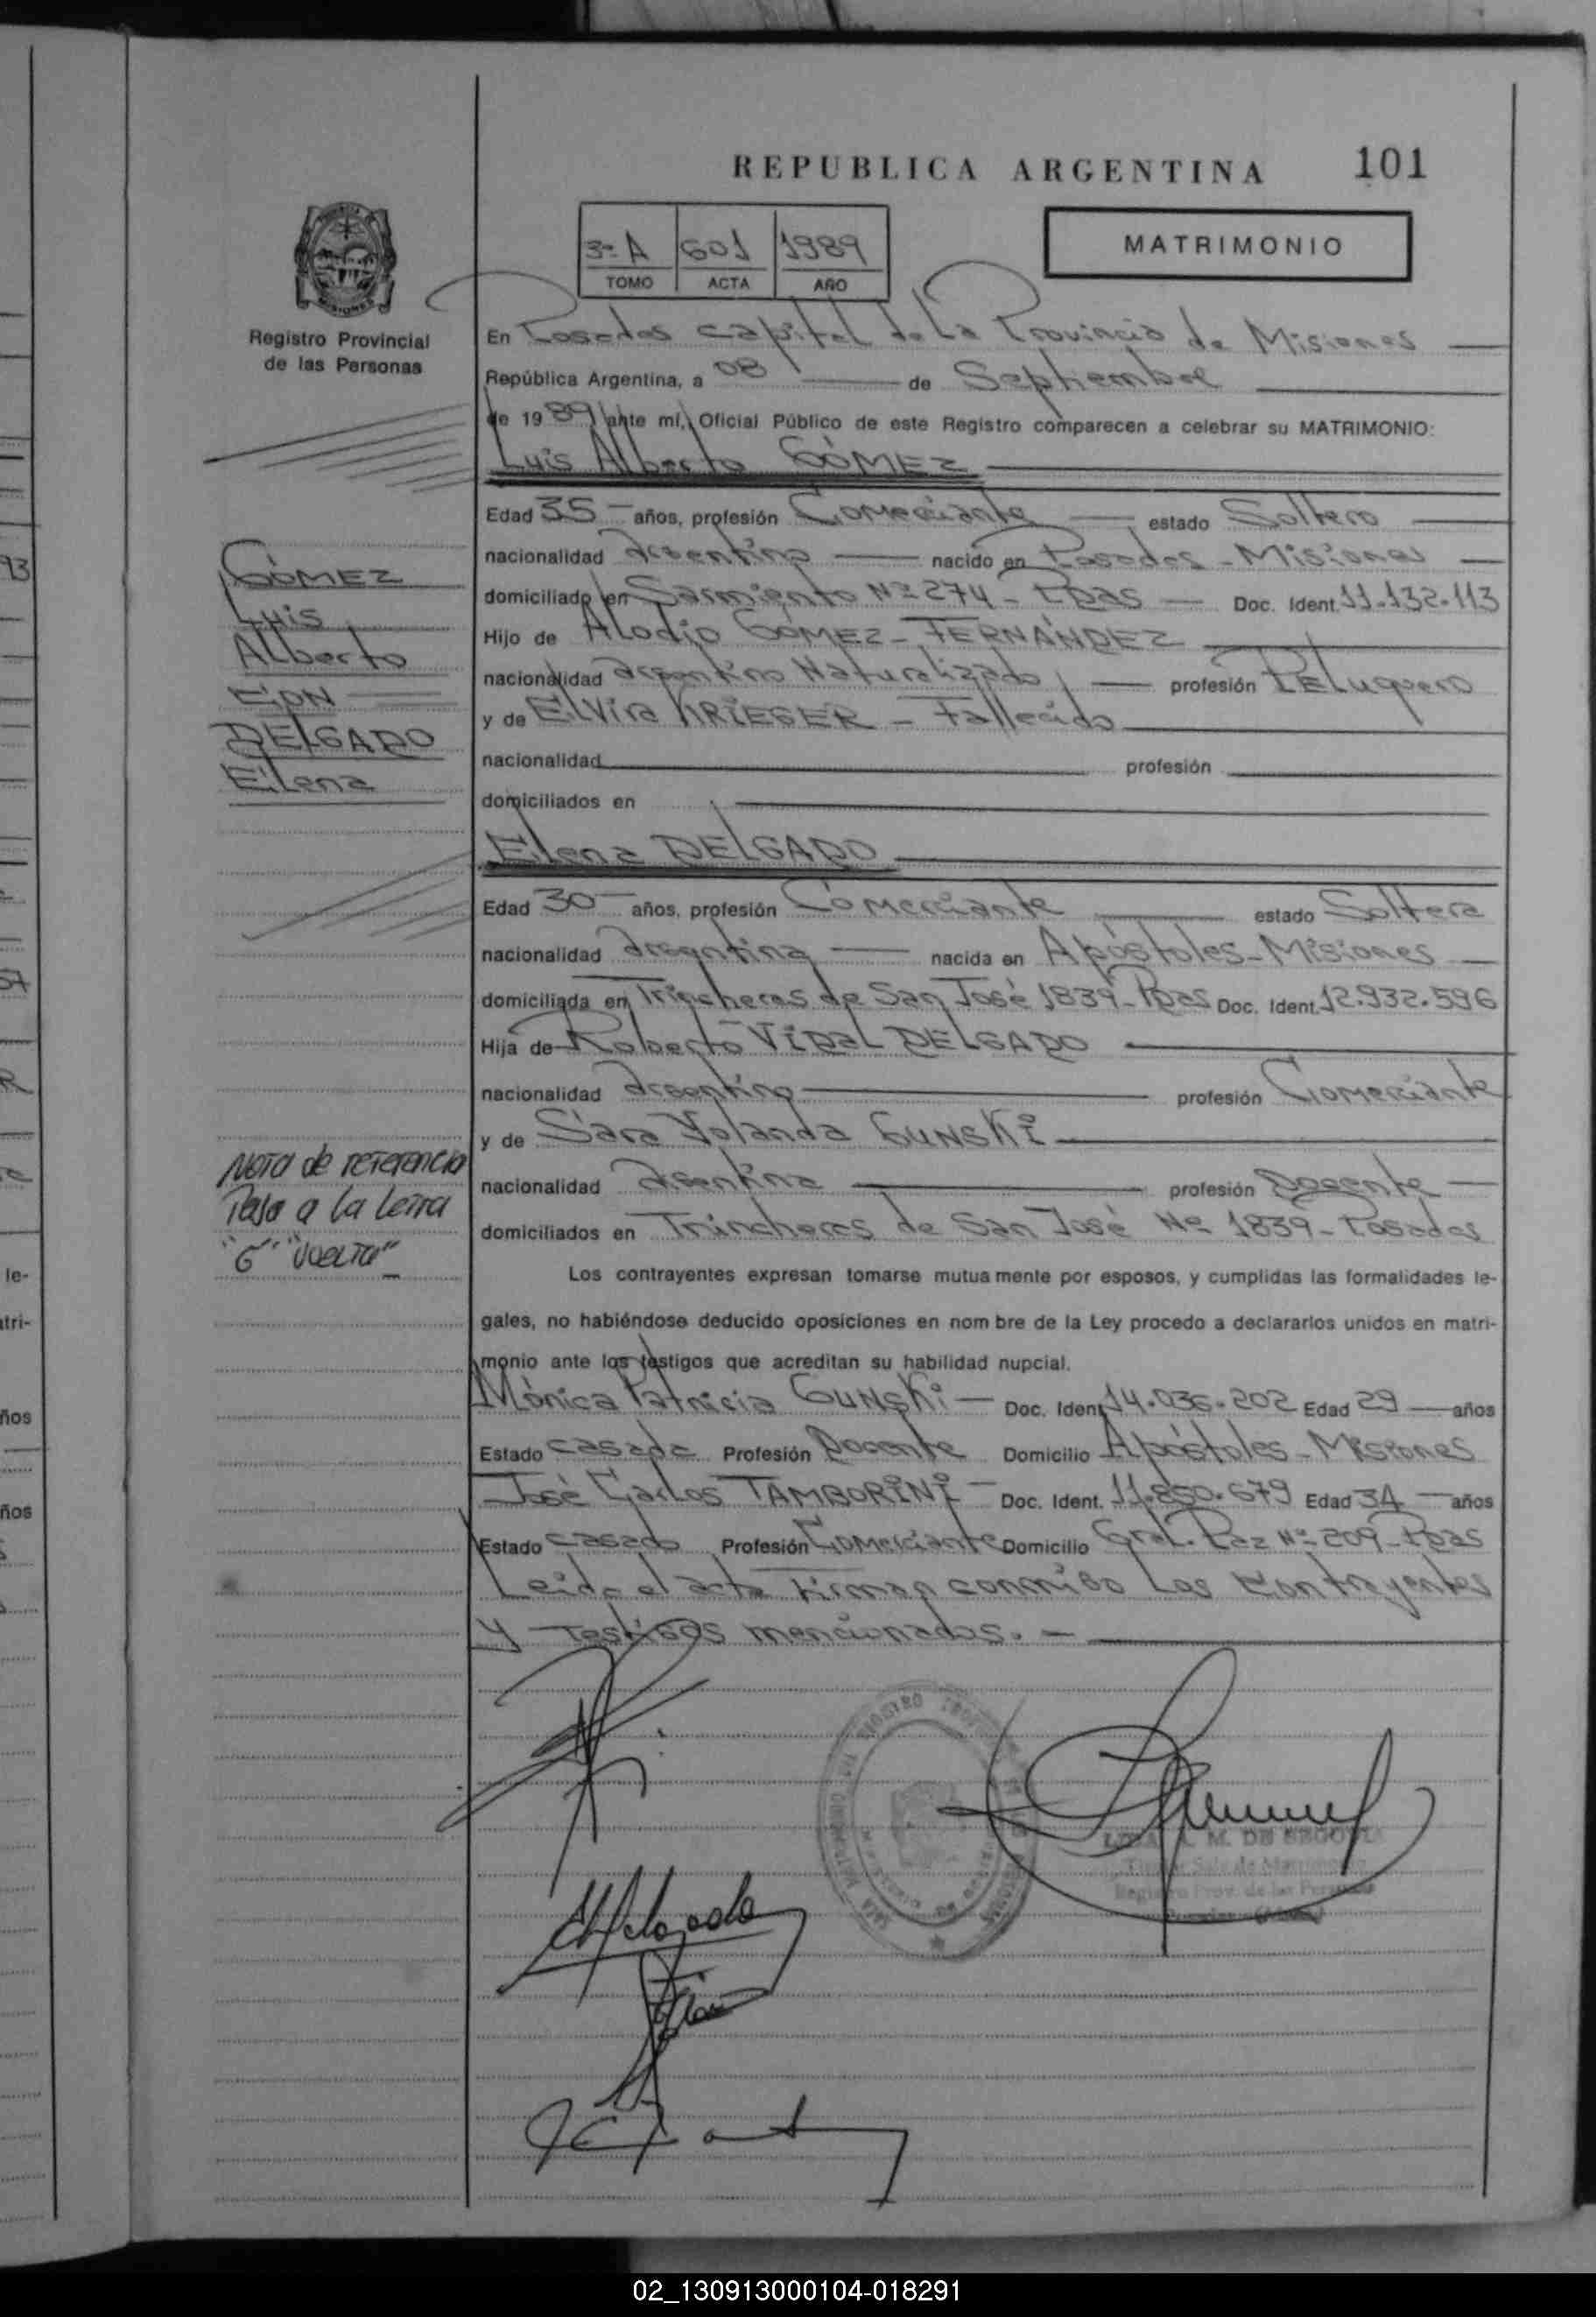 REPUBLICA ARGENTINA 101
3º A 601 1989
TOMO ACTA AÑO
MATRIMONIO
Registro Provincial
de las Personas
En Posadas Capital de la Provincia de Misiones
República Argentina, a 08 de Septiembre
de 1989 ante mí, Oficial Público de este Registro comparecen a celebrar su MATRIMONIO:
Luis Alberto GÓMEZ
Edad 35 años, profesión Comerciante estado Soltero
nacionalidad Argentino nacido en Posadas - Misiones
domiciliado en Sarmiento Nº 274 - Pdas Doc. Ident. 11.132.113
Hijo de Alodio GÓMEZ - FERNÁNDEZ
nacionalidad Argentino Naturalizado profesión Peluquero
y de Elvira KRIEGER - Fallecida
nacionalidad profesión
domiciliados en
Elena DELGADO
Edad 30 años, profesión Comerciante estado Soltera
nacionalidad Argentina nacida en Apóstoles - Misiones
domiciliada en Trincheras de San José 1839 - Pdas Doc. Ident. 12.932.596
Hija de Roberto Vidal DELGADO
nacionalidad Argentino profesión Comerciante
y de Sara Yolanda GUNSKI
nacionalidad Argentina profesión Docente
domiciliados en Trincheras de San José Nº 1839 - Posadas
Los contrayentes expresan tomarse mutua mente por esposos, y cumplidas las formalidades le-
gales, no habiéndose deducido oposiciones en nom bre de la Ley procedo a declararlos unidos en matri-
monio ante los testigos que acreditan su habilidad nupcial.
Mónica Patricia GUNSKI - Doc. Ident. 14.036.202 Edad 29 años
Estado Casada Profesión Docente Domicilio Apóstoles - Misiones
José Carlos TAMBORINI - Doc. Ident. 11.850.679 Edad 34 años
Estado Casado Profesión Comerciante Domicilio Gral. Paz Nº 209 - Pdas
Leída el acta firman conmigo los contrayentes
y testigos mencionados. -
GÓMEZ
Luis
Alberto
CON
DELGADO
Elena
Nota de referencia
Pasa a la Letra
"G" "vuelta"
M. DE SEGOVIA
02_130913000104-018291